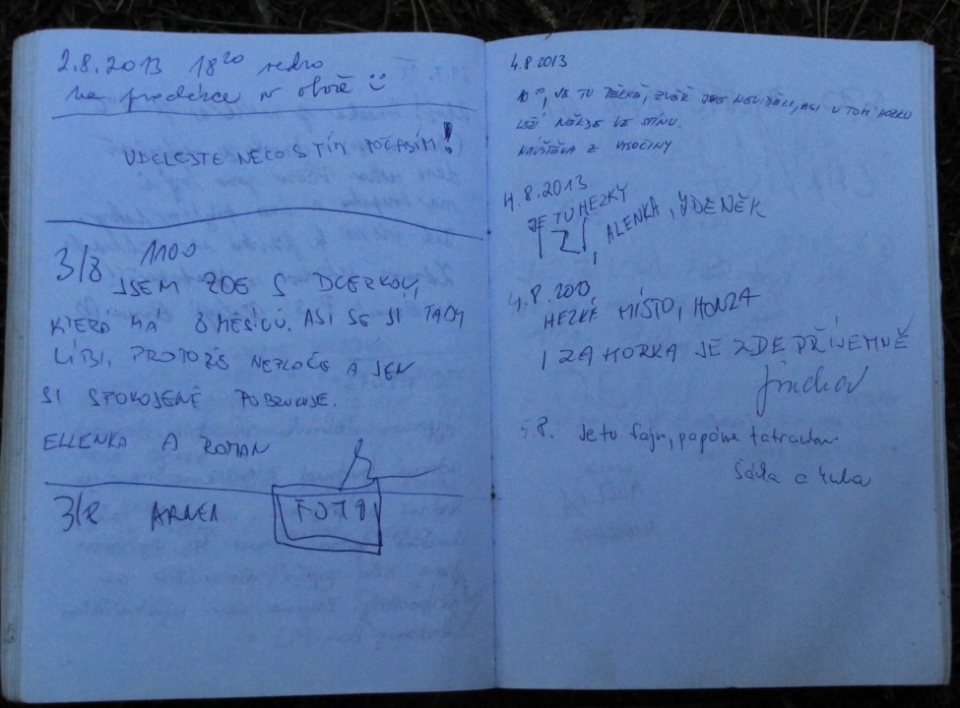 2.8.2013 18²⁰ vedro
na prodérce v oboře
UDELEJTE NĚCO S TÍM POČASÍM!
3/8 1100
JSEM ZDE S DCERKOU,
KTERÁ MÁ 8 MĚSÍCŮ. ASI SE JÍ TADY
LÍBÍ, PROTOŽE NEPLÁČE A JEN
SI SPOKOJENĚ POBRUKUJE.
ELLENKA A ROMAN
3/8
4.8.2013
10³⁰, JE TU PĚKNĚ, ZVĚŘ JSME NEVIDĚLI, ASI V TOM HORKU
LEŽÍ NĚKDE VE STÍNU.
NÁVŠTĚVA Z VYSOČINY
4.8.2013
JE TU HEZKY
ALENKA, ZDENĚK
4.8.2013
HEZKÉ MÍSTO, HONZA
I ZA HORKA JE ZDE PŘÍJEMNĚ
5.8. Je tu fajn, papáme tatranku
a